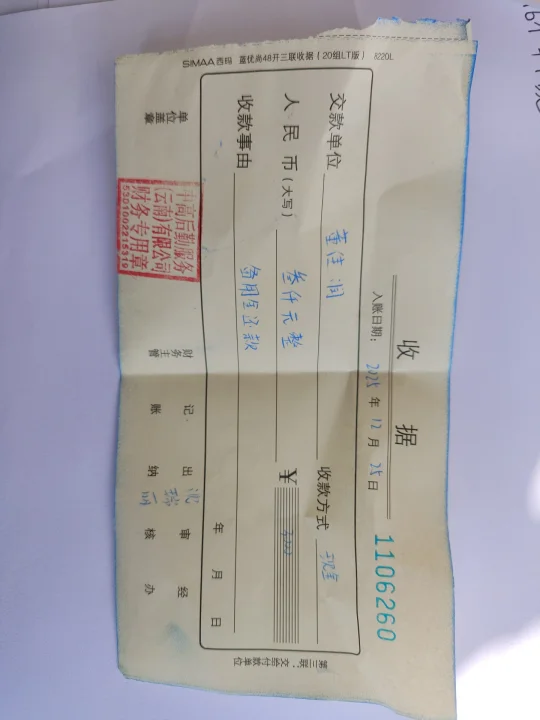 SIMAA 西玛 蓝优尚48开三联收据(20组LT版) 8220L
收 据
1106260
入账日期: 2025 年 12 月 25 日
交款单位 董佳润 收款方式 现金
人民币(大写) 叁仟元整 ¥ 3000
收款事由 备用金还款
年 月 日
单位盖章 财务主管 记账 出纳 沈瑞丽 审核 经办
(云南)有限公司
财务专用章
5301002215319
第三联:交给付款单位